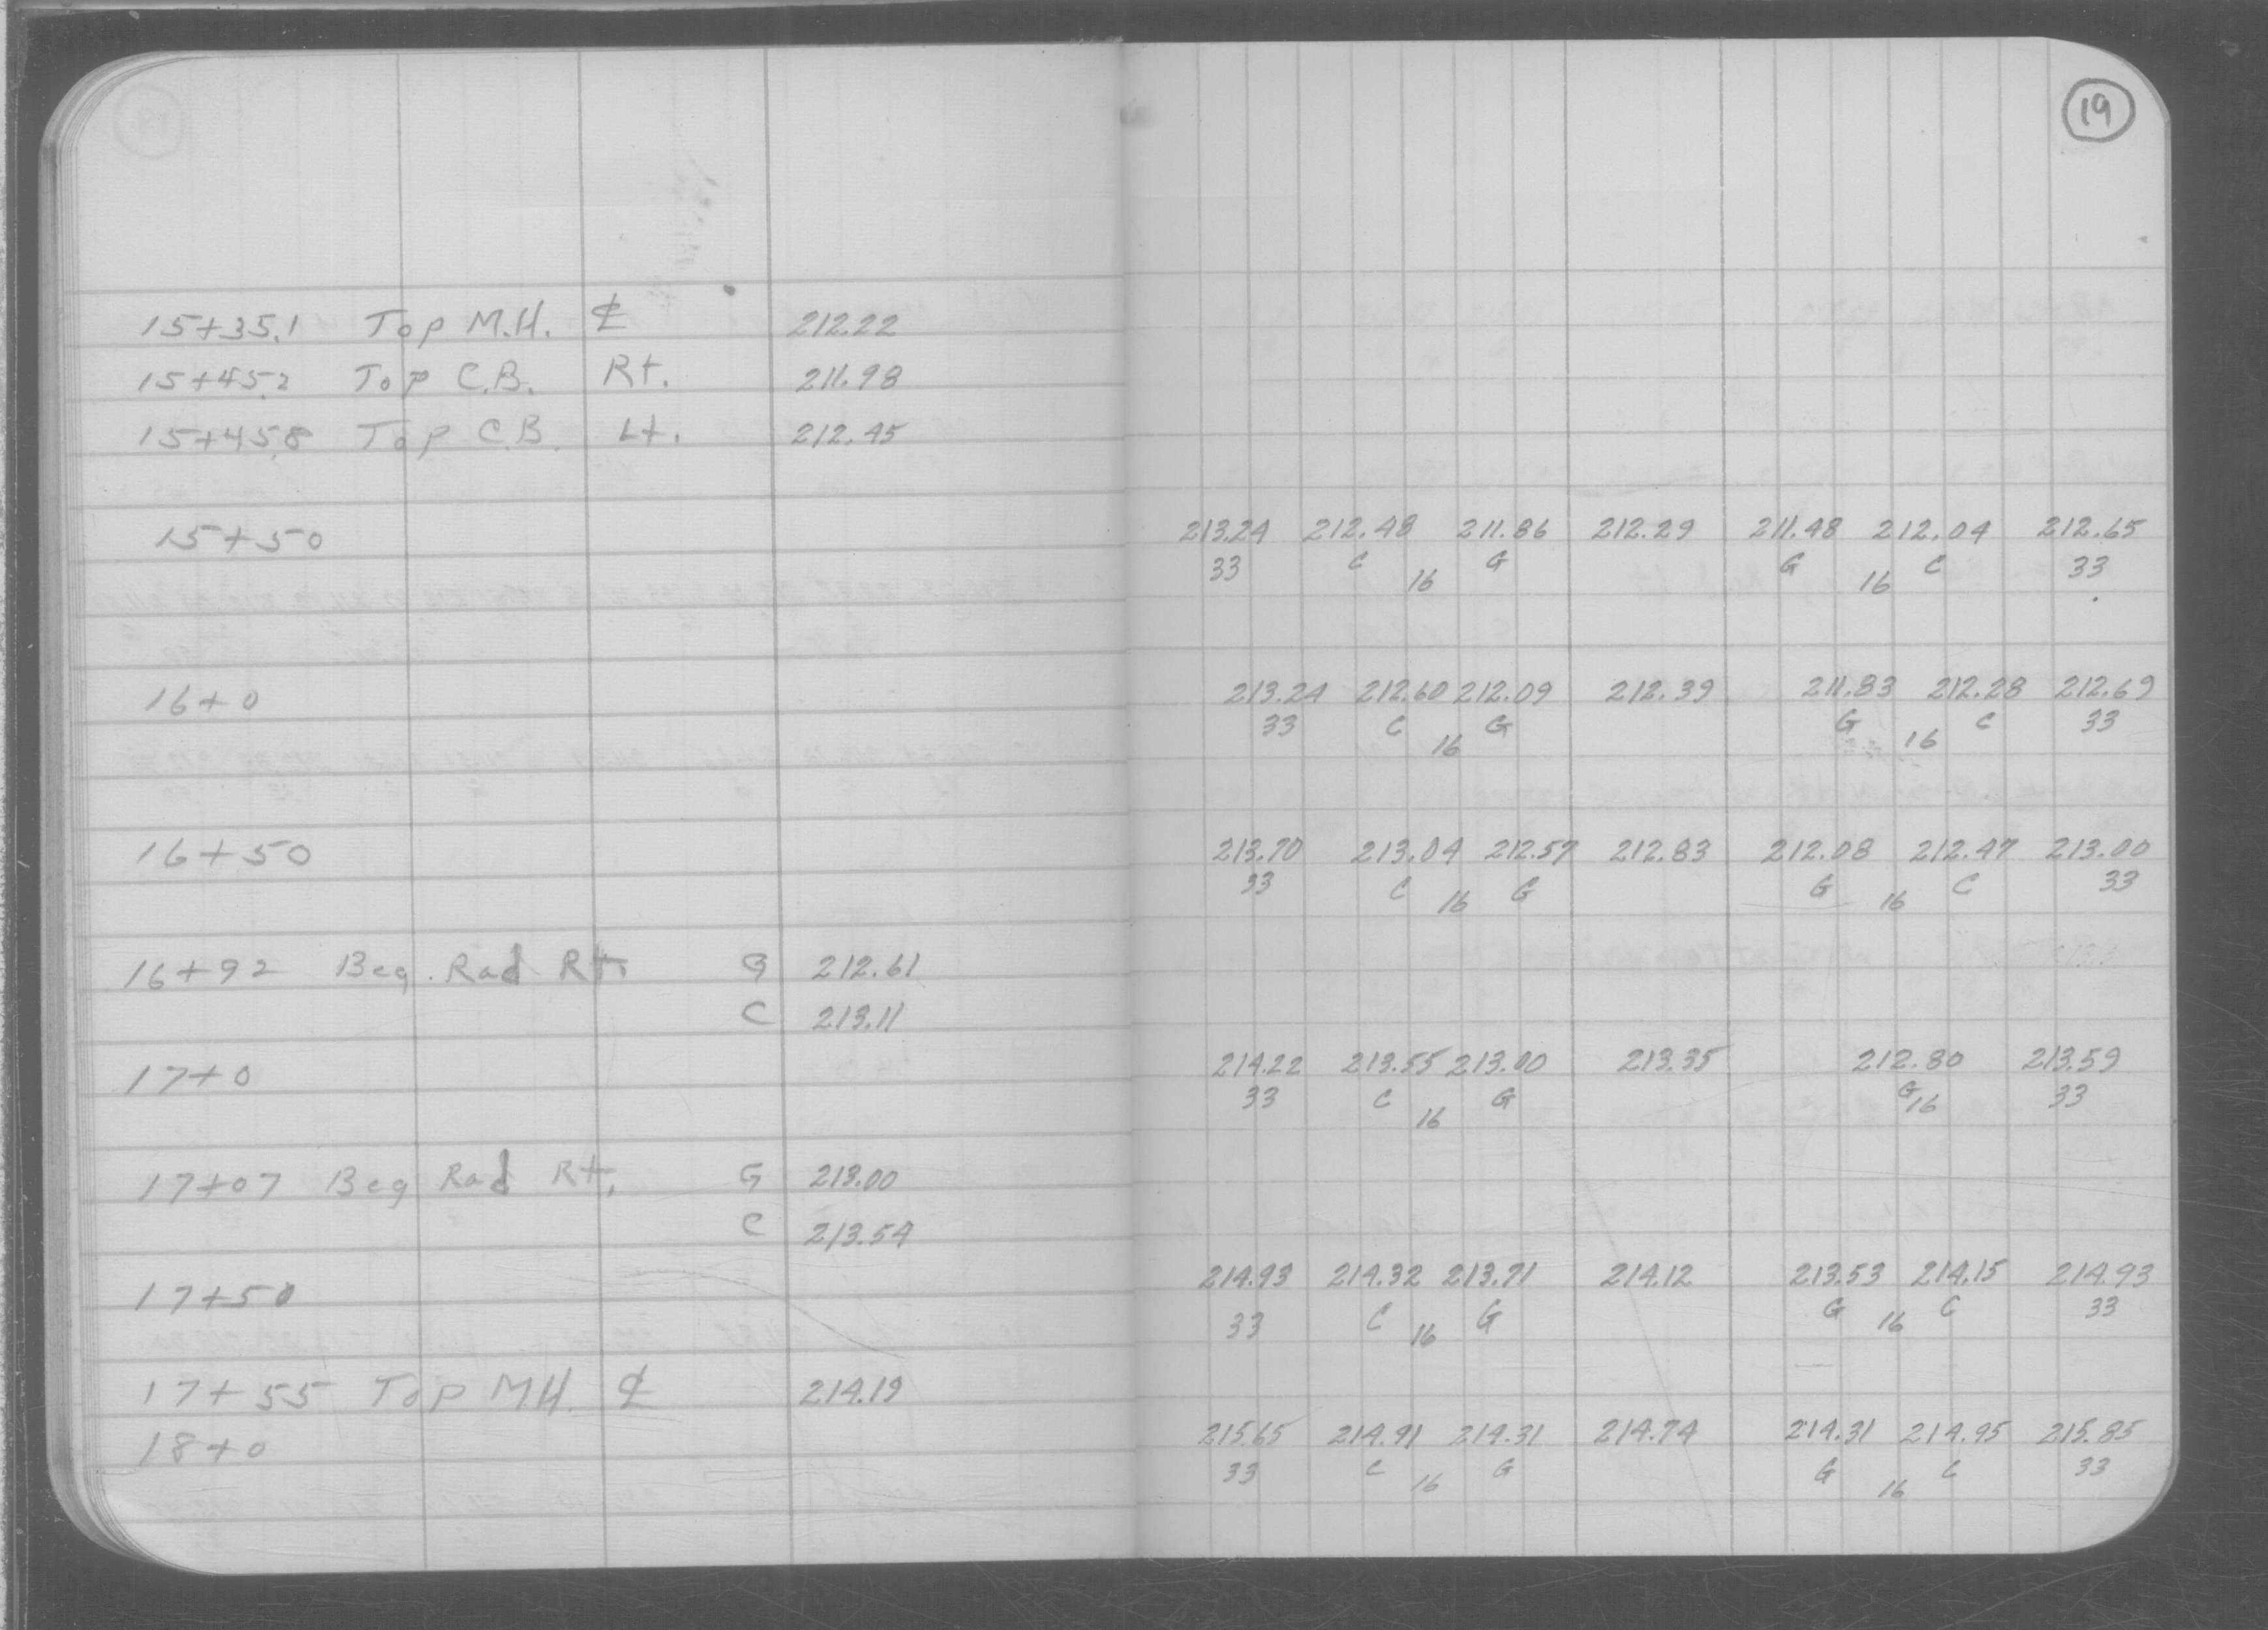 19
15+35.1 Top M.H. ℄ 212.22
15+45.2 Top C.B. Rt. 211.98
15+45.8 Top C.B. Lt. 212.45
15+50 213.24 212.48 211.86 212.29 211.48 212.04 212.65
33 C 16 G G 16 C 33
16+0 213.24 212.60 212.09 212.39 211.83 212.28 212.69
33 C 16 G G 16 C 33
16+50 213.70 213.04 212.57 212.83 212.08 212.47 213.00
33 C 16 G G 16 C 33
16+92 Beg. Rad Rt. G 212.61
C 213.11
17+0 214.22 213.55 213.00 213.35 212.80 213.59
33 C 16 G G 16 33
17+07 Beg Rad Rt. G 213.00
C 213.54
17+50 214.93 214.32 213.71 214.12 213.53 214.15 214.93
33 C 16 G G 16 C 33
17+55 Top MH. ℄ 214.19
18+0 215.65 214.91 214.31 214.74 214.31 214.95 215.85
33 C 16 G G 16 C 33